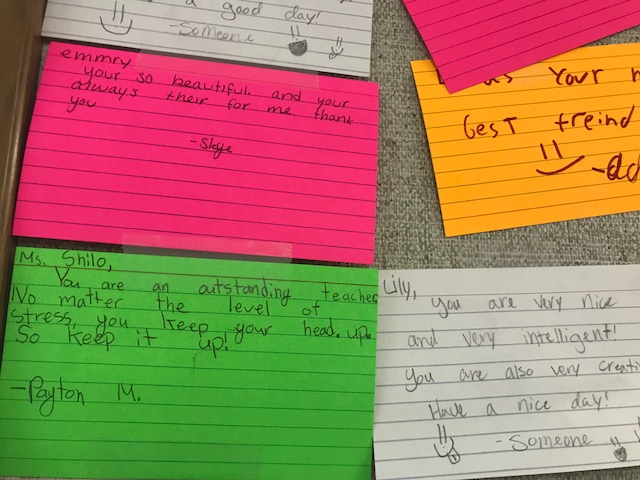 a good day!
-Someone
emmry
your so beautiful and your
always their for me. thank
you
-Skye
Your
best treind
Ms. Shilo,
You are an outstanding teacher
No matter the level of
stress, you keep your head up.
So keep it up!
-Payton M.
Lily,
you are very nice
and very intelligent!
You are also very creati
Have a nice day!
-Someone